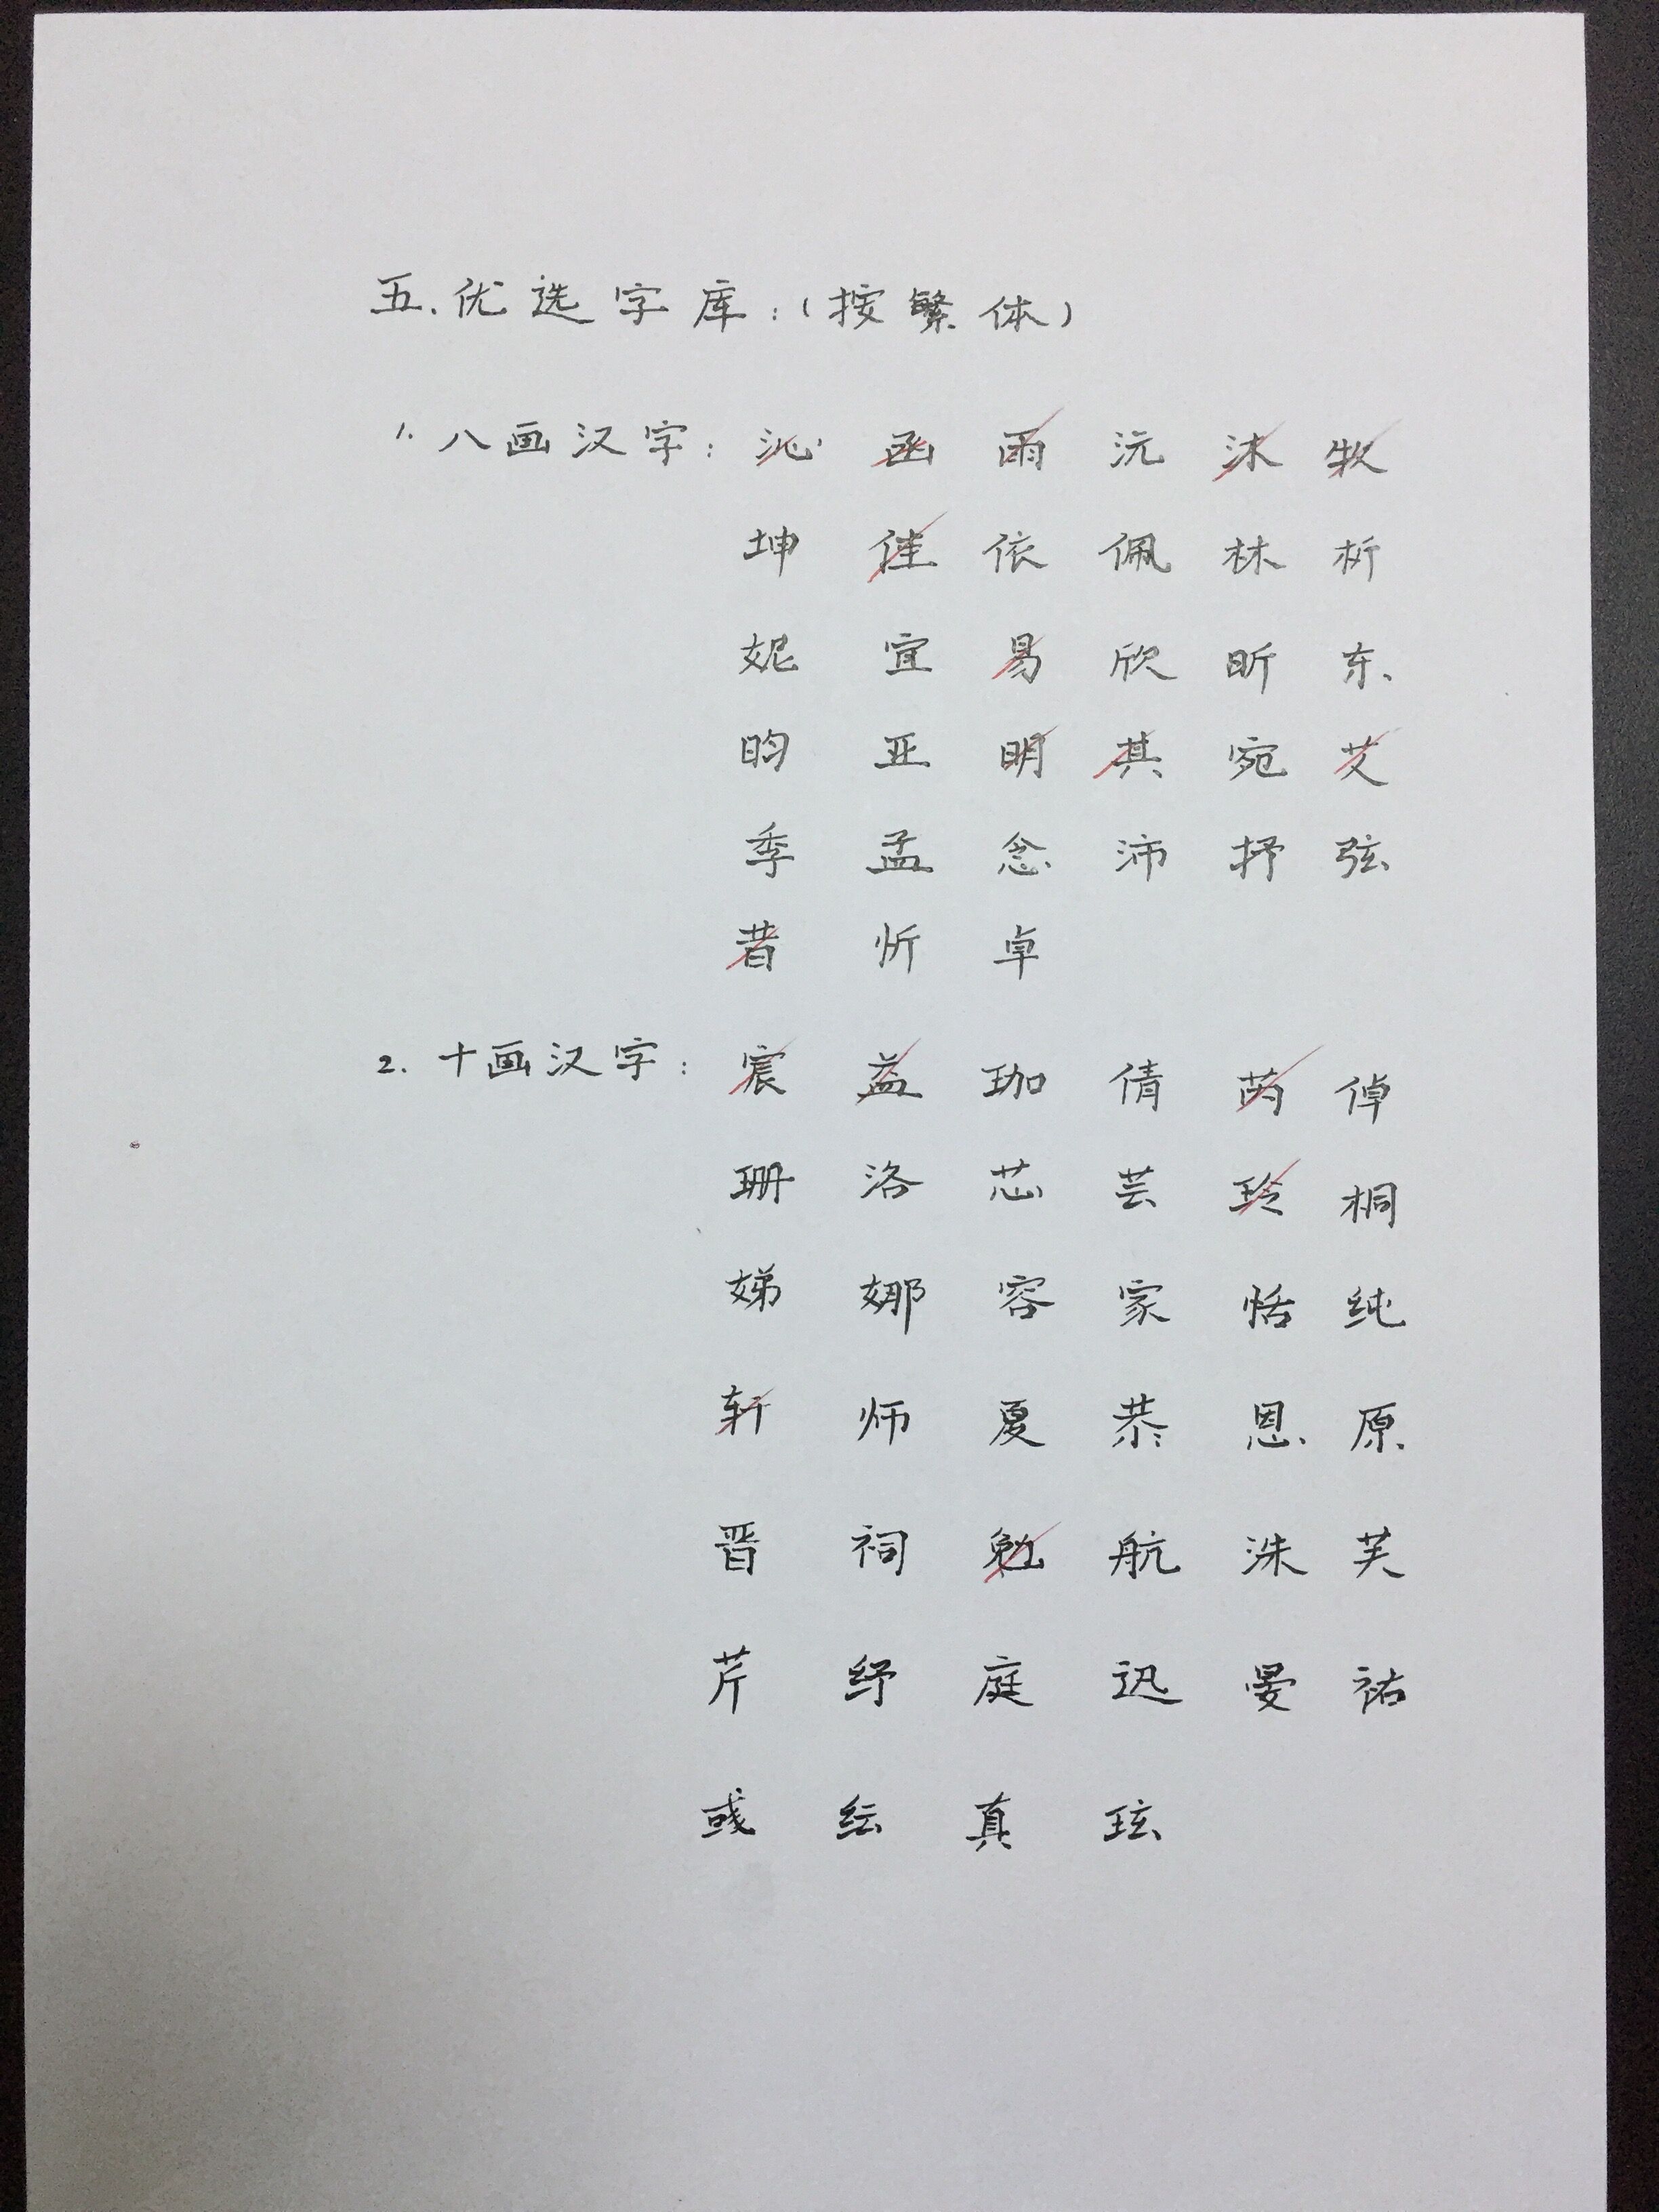 五.优选字库:(按繁体)
1.八画汉字: 沁 函 雨 沅 沐 牧
坤 佳 依 佩 林 析
妮 宜 易 欣 昕 东
昀 亚 明 其 宛 艾
季 孟 念 沛 抒 弦
昔 忻 卓
2.十画汉字: 宸 益 珈 倩 芮 倬
珊 洛 芯 芸 玲 桐
娣 娜 容 家 恬 纯
轩 师 夏 恭 恩 原
晋 祠 勉 航 洙 芙
芹 纾 庭 迅 晏 祐
彧 纭 真 玹